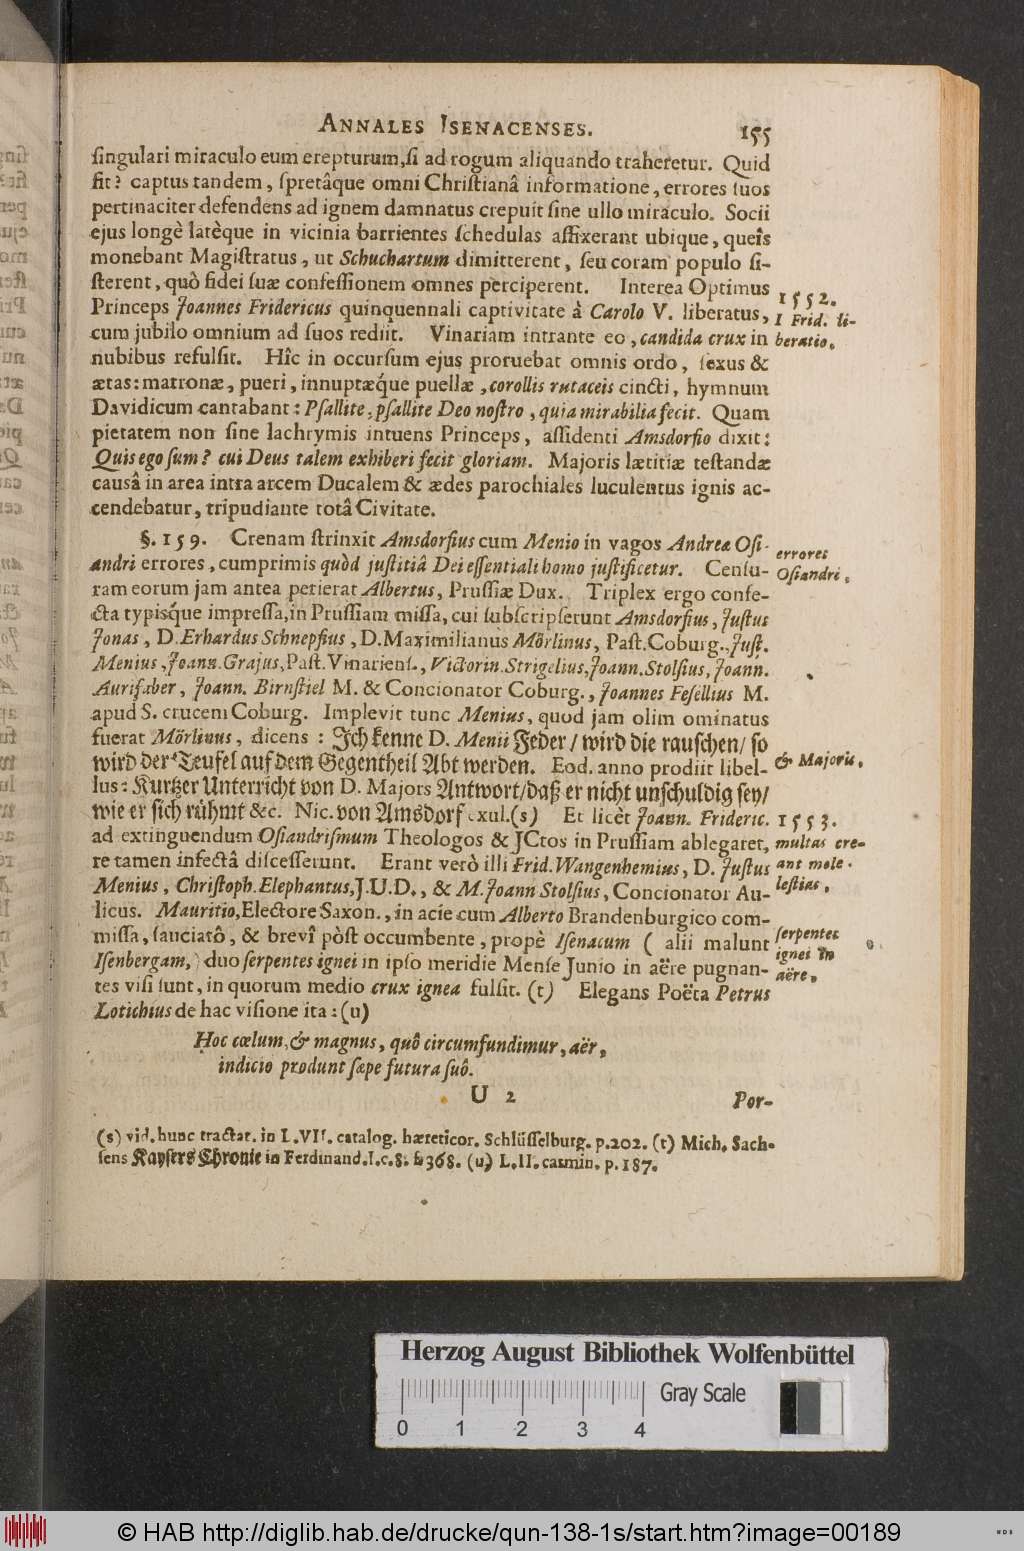 ANNALES ISENACENSES. 155
ſingulari miraculo eum erepturum, ſi ad rogum aliquando traheretur. Quid
fit? captus tandem, ſpretâque omni Chriſtianâ informatione, errores ſuos
pertinaciter defendens ad ignem damnatus crepuit ſine ullo miraculo. Socii
ejus longè latèque in vicinia barrientes ſchedulas affixerant ubique, queîs
monebant Magiſtratus, ut Schuchartum dimitterent, ſeu coram populo ſi-
ſterent, quò fidei ſuæ confeſſionem omnes perciperent. Interea Optimus
Princeps Joannes Fridericus quinquennali captivitate à Carolo V. liberatus,
cum jubilo omnium ad ſuos rediit. Vinariam intrante eo, candida crux in
nubibus refulſit. Hîc in occurſum ejus proruebat omnis ordo, ſexus &
ætas: matronæ, pueri, innuptæq́ue puellæ, corollis rutaceis cincti, hymnum
Davidicum cantabant: Pſallite, pſallite Deo noſtro, quia mirabilia fecit. Quam
pietatem non ſine lachrymis intuens Princeps, aſſidenti Amsdorfio dixit:
Quis ego ſum? cui Deus talem exhiberi fecit gloriam. Majoris lætitiæ teſtandæ
causâ in area intra arcem Ducalem & ædes parochiales luculentus ignis ac-
cendebatur, tripudiante totâ Civitate.
1552.
I Frid. li-
beratio.
§. 159. Crenam ſtrinxit Amsdorfius cum Menio in vagos Andreæ Oſi-
andri errores, cumprimis quòd juſtitiâ Dei eſſentiali homo juſtificetur. Cenſu-
ram eorum jam antea petierat Albertus, Pruſſiæ Dux. Triplex ergo confe-
cta typisq́ue impreſſa, in Pruſſiam miſſa, cui ſubſcripſerunt Amsdorfius, Juſtus
Jonas, D. Erhardus Schnepfius, D. Maximilianus Mörlinus, Paſt. Coburg., Juſt.
Menius, Joann. Grajus, Paſt. Vinarienſ., Victorin. Strigelius, Joann. Stolſius, Joann.
Aurifaber, Joann. Birnſtiel M. & Concionator Coburg., Joannes Feſellius M.
apud S. crucem Coburg. Implevit tunc Menius, quod jam olim ominatus
fuerat Mörlinus, dicens: Ich kenne D. Menii Feder / wird die rauſchen / ſo
wird der Teufel auf dem Gegentheil Abt werden. Eod. anno prodiit libel-
lus: Kurtzer Unterricht von D. Majors Antwort / daß er nicht unſchuldig ſey /
wie er ſich rühmt &c. Nic. von Amsdorf exul. (s) Et licèt Joann. Frideric.
ad extinguendum Oſiandriſmum Theologos & JCtos in Pruſſiam ablegaret,
re tamen infectâ diſceſſerunt. Erant verò illi Frid. Wangenhemius, D. Juſtus
Menius, Chriſtoph. Elephantus, J.U.D., & M. Joann Stolſius, Concionator Au-
licus. Mauritio, Electore Saxon., in acie cum Alberto Brandenburgico com-
miſſa, ſauciatô, & brevî pòſt occumbente, propè Iſenacum ( alii malunt
Iſenbergam, ) duo ſerpentes ignei in ipſo meridie Menſe Junio in aëre pugnan-
tes viſi ſunt, in quorum medio crux ignea fulſit. (t) Elegans Poëta Petrus
Lotichius de hac viſione ita: (u)
errores
Oſiandri,
& Majoris.
1553.
multas cre-
ant mole-
leſtias.
ſerpentes
ignei in
aëre.
Hoc cœlum, & magnus, quô circumfundimur, aër,
indicio produnt ſæpe futura ſuô.
U 2 Por-
(s) vid. hunc tractat. in L. VII. catalog. hæreticor. Schlüſſelburg. p. 202. (t) Mich. Sach-
ſens Kayſers Chronic in Ferdinand. I. c. 8. f. 368. (u) L. II. carmin. p. 187.
Herzog August Bibliothek Wolfenbüttel
Gray Scale
0 1 2 3 4
© HAB http://diglib.hab.de/drucke/qun-138-1s/start.htm?image=00189